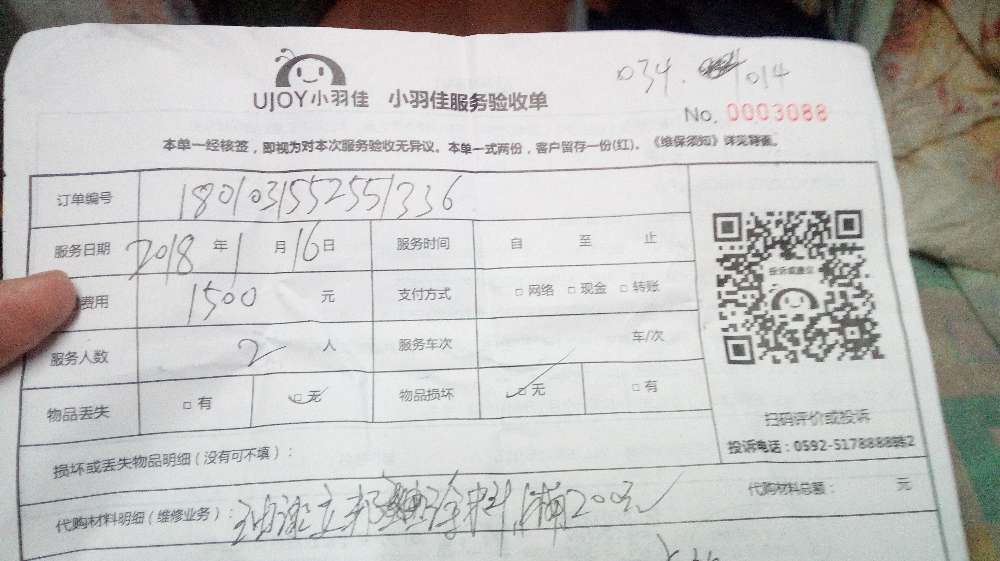 034. 1014
UJOY小羽佳 小羽佳服务验收单
No. 0003088
本单一经核签，即视为对本次服务验收无异议。本单一式两份，客户留存一份(红)。《维保须知》详见背面。
订单编号 1801031552551336
服务日期 2018 年 1 月 16 日 服务时间 自 至 止
费用 1500 元 支付方式 □ 网络 □ 现金 □ 转账
服务人数 2 人 服务车次 车/次
物品丢失 □ 有 □ 无 物品损坏 □ 无 □ 有
投诉或建议
扫码评价或投诉
投诉电话：0592-5178888转2
损坏或丢失物品明细（没有可不填）：
代购材料明细（维修业务）： 油漆立邦 涂料，补200元
代购材料总额： 元